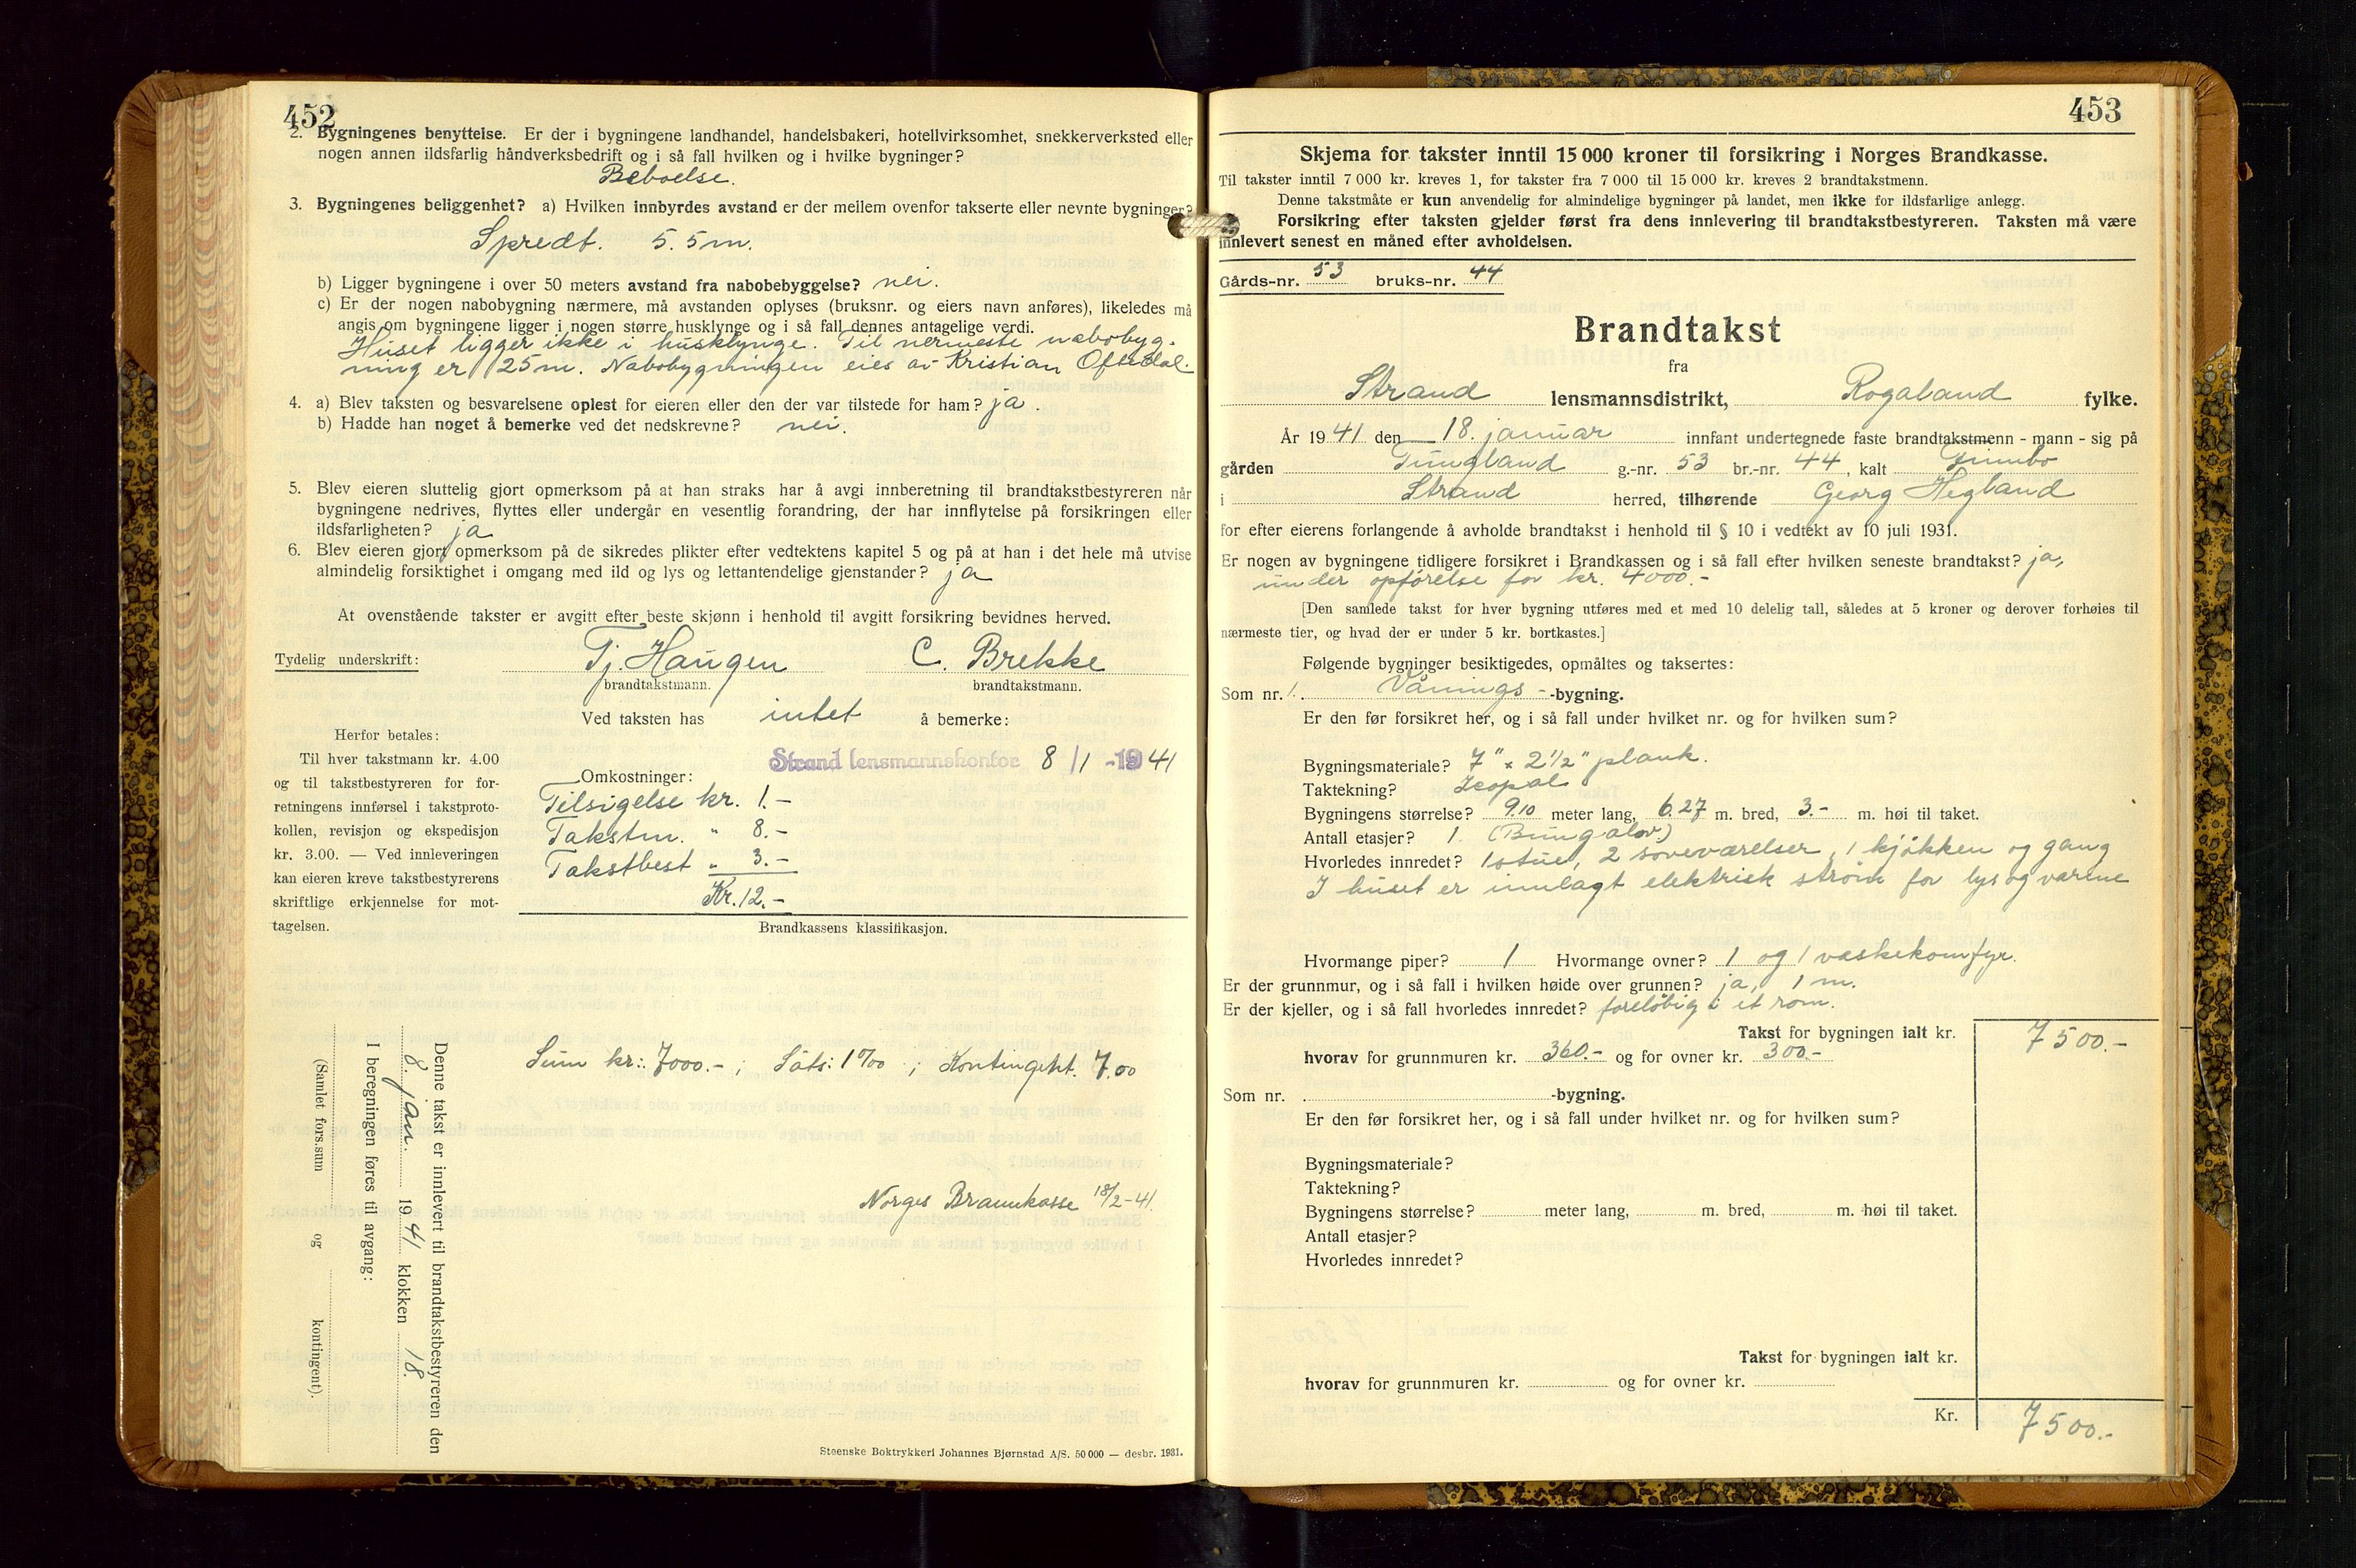 452
2. Bygningenes benyttelse. Er der i bygningene landhandel, handelsbakeri, hotellvirksomhet, snekkerverksted eller
nogen annen ildsfarlig håndverksbedrift og i så fall hvilken og i hvilke bygninger?
Beboelse.
3. Bygningenes beliggenhet? a) Hvilken innbyrdes avstand er der mellem ovenfor takserte eller nevnte bygninger?
Spredt. 5.5 m.
b) Ligger bygningene i over 50 meters avstand fra nabobebyggelse? nei.
c) Er der nogen nabobygning nærmere, må avstanden oplyses (bruksnr. og eiers navn anføres), likeledes må
angis om bygningene ligger i nogen større husklynge og i så fall dennes antagelige verdi.
Huset ligger ikke i husklynge. Til nermeste nabobyg-
ning er 25 m. Nabobygningen eies av Kristian Oftedal.
4. a) Blev taksten og besvarelsene oplest for eieren eller den der var tilstede for ham? ja.
b) Hadde han noget å bemerke ved det nedskrevne? nei.
5. Blev eieren sluttelig gjort opmerksom på at han straks har å avgi innberetning til brandtakstbestyreren når
bygningene nedrives, flyttes eller undergår en vesentlig forandring, der har innflytelse på forsikringen eller
ildsfarligheten? ja
6. Blev eieren gjort opmerksom på de sikredes plikter efter vedtektens kapitel 5 og på at han i det hele må utvise
almindelig forsiktighet i omgang med ild og lys og lettantendelige gjenstander? ja
At ovenstående takster er avgitt efter beste skjønn i henhold til avgitt forsikring bevidnes herved.
Tydelig underskrift: Tj. Haugen C. Brekke
brandtakstmann. brandtakstmann.
Ved taksten has intet å bemerke:
Strand lensmannskontor 8/1 - 1941
Herfor betales:
Til hver takstmann kr. 4.00
og til takstbestyreren for for-
retningens innførsel i takstproto-
kollen, revisjon og ekspedisjon
kr. 3.00. — Ved innleveringen
kan eieren kreve takstbestyrerens
skriftlige erkjennelse for mot-
tagelsen.
Omkostninger:
Tilsigelse kr. 1.-
Takstm. " 8.-
Takstbest " 3.-
Kr. 12.-
Brandkassens klassifikasjon.
Sum kr.: 7000.- ; Sats: 1 ‰ ; Kontingent. 7.00
Norges Brannkasse 18/2-41.
Denne takst er innlevert til brandtakstbestyreren den
8. jan. 1941 klokken 18.
I beregningen føres til avgang:
(Samlet fors.sum og kontingent).
Steenske Boktrykkeri Johannes Bjørnstad A/S. 50 000 — desbr. 1931.
453
Skjema for takster inntil 15 000 kroner til forsikring i Norges Brandkasse.
Til takster inntil 7 000 kr. kreves 1, for takster fra 7 000 til 15 000 kr. kreves 2 brandtakstmenn.
Denne takstmåte er kun anvendelig for almindelige bygninger på landet, men ikke for ildsfarlige anlegg.
Forsikring efter taksten gjelder først fra dens innlevering til brandtakstbestyreren. Taksten må være
innlevert senest en måned efter avholdelsen.
Gårds-nr. 53 bruks-nr. 44
Brandtakst
fra
Strand lensmannsdistrikt, Rogaland fylke.
År 1941 den 18. januar innfant undertegnede faste brandtakstmenn - mann - sig på
gården Tungland g.-nr. 53 br.-nr. 44, kalt
i Strand herred, tilhørende Georg Hegland
for efter eierens forlangende å avholde brandtakst i henhold til § 10 i vedtekt av 10 juli 1931.
Er nogen av bygningene tidligere forsikret i Brandkassen og i så fall efter hvilken seneste brandtakst? ja,
under opförelse for kr. 4000.-
[Den samlede takst for hver bygning utføres med et med 10 delelig tall, således at 5 kroner og derover forhøies til
nærmeste tier, og hvad der er under 5 kr. bortkastes.]
Følgende bygninger besiktigedes, opmåltes og taksertes:
Som nr. 1. Vånings- -bygning.
Er den før forsikret her, og i så fall under hvilket nr. og for hvilken sum?
Bygningsmateriale? 7" x 2 1/2" plank.
Taktekning? Icopal
Bygningens størrelse? 9.10 meter lang, 6.27 m. bred, 3.- m. høi til taket.
Antall etasjer? 1. (Bungalov)
Hvorledes innredet? 1 stue, 2 soveværelser, 1 kjökken og gang
I huset er innlagt elektrisk strøm for lys og varme
Hvormange piper? 1 Hvormange ovner? 1 og 1 vaskekomfyr.
Er der grunnmur, og i så fall i hvilken høide over grunnen? ja, 1 m.
Er der kjeller, og i så fall hvorledes innredet? foreløbig i et rom.
Takst for bygningen ialt kr. 7500.-
hvorav for grunnmuren kr. 360.- og for ovner kr. 300.-
Som nr. -bygning.
Er den før forsikret her, og i så fall under hvilket nr. og for hvilken sum?
Bygningsmateriale?
Taktekning?
Bygningens størrelse? meter lang, m. bred, m. høi til taket.
Antall etasjer?
Hvorledes innredet?
Takst for bygningen ialt kr.
hvorav for grunnmuren kr. og for ovner kr.
Kr. 7500.-